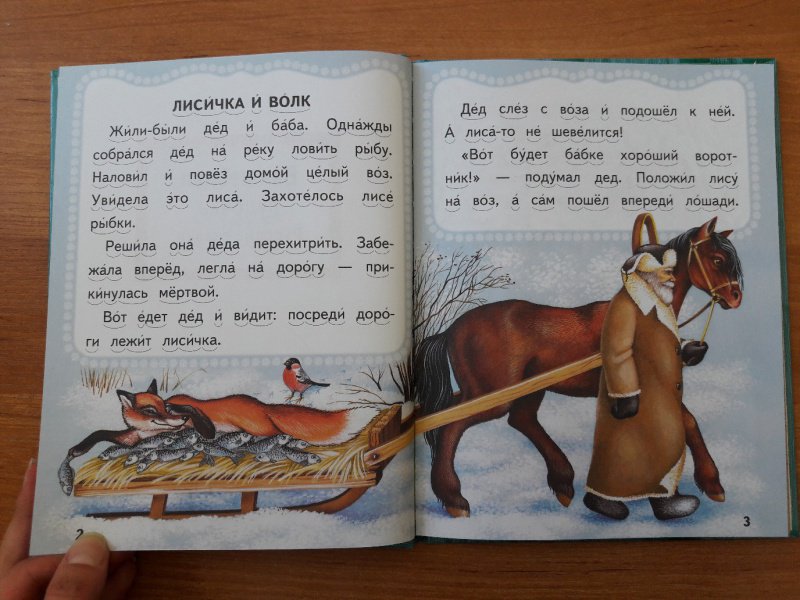 ЛИСИ́ЧКА И́ ВО́ЛК
Жи́ли-бы́ли де́д и́ ба́ба. Одна́жды
собра́лся де́д на́ ре́ку лови́ть ры́бу.
Налови́л и́ повёз домо́й це́лый во́з.
Уви́дела э́то лиса́. Захоте́лось лисе́
ры́бки.
Реши́ла она́ де́да перехитри́ть. Забе-
жа́ла вперёд, легла́ на́ доро́гу — при-
ки́нулась мёртвой.
Во́т е́дет де́д и́ ви́дит: посреди́ доро́-
ги лежи́т лиси́чка.
2
Де́д сле́з с во́за и́ подошёл к не́й.
А́ лиса́-то не́ шевели́тся!
«Во́т бу́дет ба́бке хоро́ший ворот-
ни́к!» — поду́мал дед. Положи́л лису́
на́ во́з, а́ са́м пошёл впереди́ ло́шади.
3